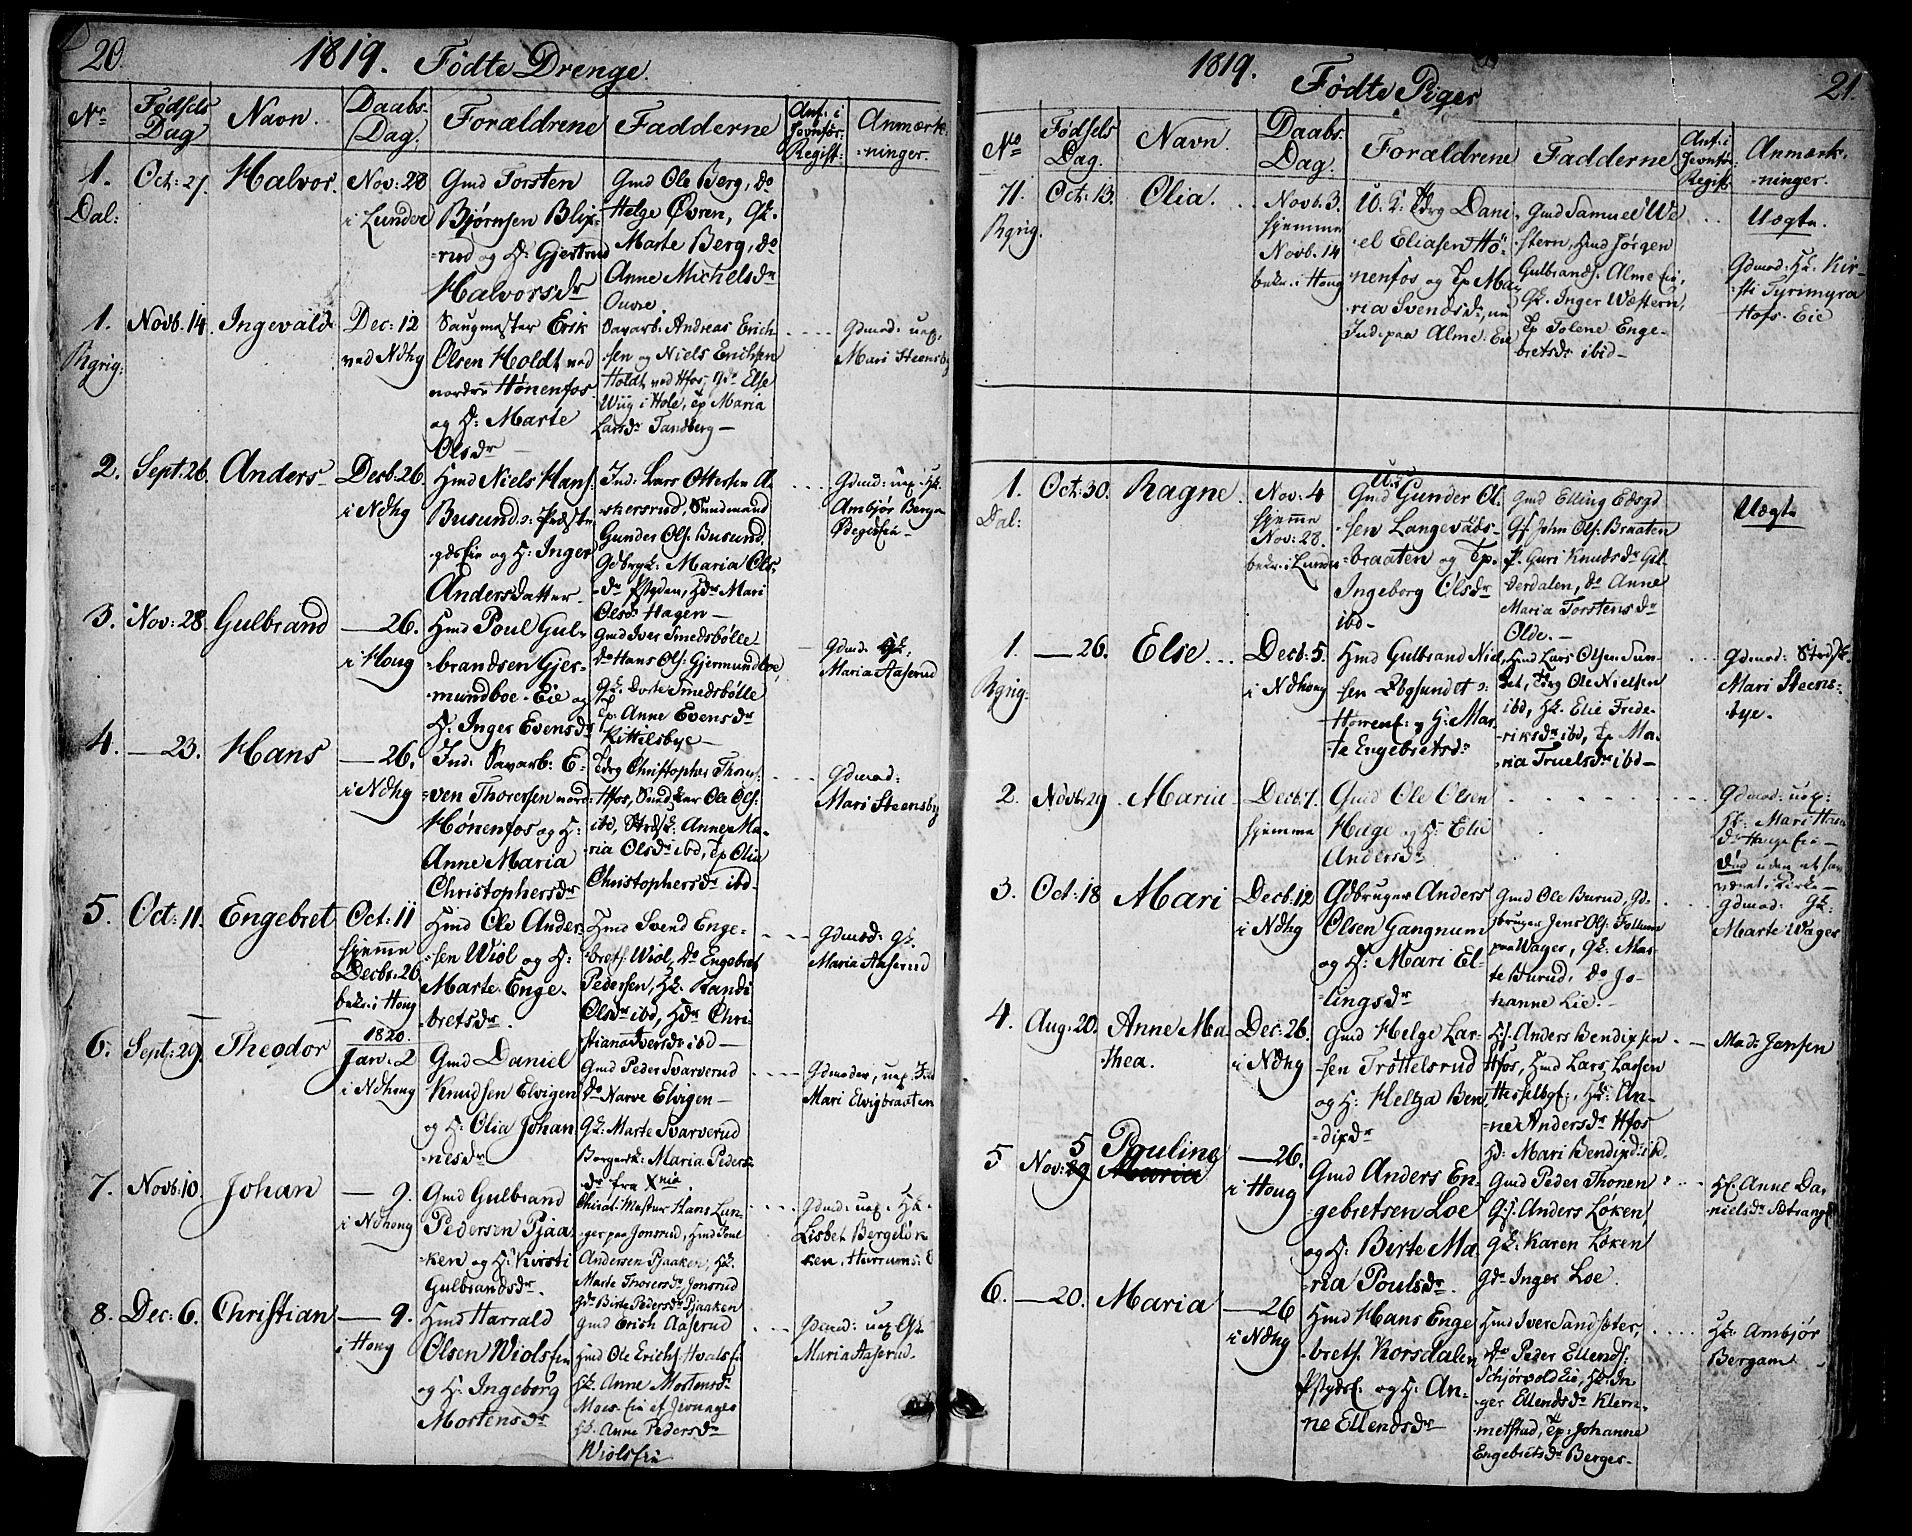 20.
1819. Fødte Drenge.
No
Fødsels Dag
Navn.
Daabs-Dag.
Forældrene
Fadderne
Anf. i Jevnfør: Regist:
Anmærk-ninger.
1. Dal:
Oct: 27.
Halvor.
Nov: 28
i Lunder
Gmd Torsten
Bjørnsen Blix-
rud og H: Gjertrud
Halvorsdr
Gmd Ole Berg, do
Helge Øvren, Gk.
Marte Berg, do
Anne Michelsdr
1. Rgrig.
Novb. 14
Ingevald
Dec: 12
ved Ndhg
Saugmester Erik
Olsen Holdt ved
nordre Hønenfos
og H: Marte
Olsdr
Savarb: Andreas Erich-
sen og Niels Erichsen
Holdt ved Hfos, Gdr Else
Wiig i Hole, Tp Maria
Larsdr Tandberg
Gdmod: uep.
Mari Steensby
2.
Sept: 26
Anders
Decb: 26.
i Ndhg
Hmd Niels Hans:
Busund
og H: Inger
Andersdatter
Ind: Lars Ottersen A-
skersrud, Sundmand
Gunder Ols: Busund
Gdbrgk: Maria Ols-
dr Pstgden, Hdr Mari
Olsdr Hagen
Gdmd: uep. Hk.
Ambjør Berga
3.
Nov: 28.
Gulbrand
26.
i Houg
Hmd Poul Gul-
brandsen Gjer-
mundboe-Eie og
H: Inger Evensdr
Gmd Iver Smedsbølle
do Hans Ols: Gjermundboe,
Gk. Dorte Smedsbølle
Tp. Anne Evensdr
Kittilsbye
Gdmd: Gk:
Maria Aaserud
4.
23.
Hans
26.
i Ndhg
Ind: Savarb: E-
ven Thoressen nord:
Hønenfos og H:
Anne Maria
Christophersdr
Christopher Thoms:
Hfos, Ole Ols:
ibd, Anne Ma-
ria Olsdr ibd, Tp Olia
Christophersdr ibd
Gdmod:
Mari Steensby
5.
Oct: 11.
Engebret
Oct: 11
hjemme
Decbr: 26
bekr. i Houg
Hmd Ole Ander-
sen Wiol og H:
Marte Enge-
bretsdr.
Hmd Svend Enge-
brets: Wiol, do Engebret
Pedersen, Hk. Randi
Olsdr ibd, Hdr Chri-
stiana Iversdr ibd
Gdmod: Gk.
Maria Aaserud
6.
Sept: 29.
Theodor
1820.
Jan: 2
i Ndhoug
Gmd Daniel
Knudsen Elvigen
og H: Olia Johan-
nesdr
Gmd Peder Svarverud
do Narve Elvigen
Gk: Marte Svarverud
Borgersk: Maria Peders-
dr fra Xnia.
Gdmoder, uep.
Mari Elvigbraaten
7.
Novb: 10.
Johan
9.
i Ndhoug
Gmd Gulbrand
Pedersen Pjaa-
ken og H: Kirsti
Gulbrandsdr.
Mester Hans Lun-
ger paa Jonsrud, Hmd Poul
Andersen Pjaaken, Hk.
Marte Thoresdr Jonsrud
Gdr Birte Pedersdr Pjaaken
Gdmd: uep. Hk.
Lisbet Bergeløk-
ken,
8.
Dec: 6.
Christian
9.
i Houg
Hmd Harrald
Olsen Wiolseie
og H: Ingeborg
Mortensdr
Gmd Erich Aaserud
Hmd Ole Erichs:
Hk. Anne Mortensdr
Moes-Eie af Jevnager
Hk. Anne Pedersdr
Wiolseie
Gdmod: uep Gk
Maria Aaserud.
1819.
Fødte Piger
21.
No
Fødsels Dag.
Navn.
Daabs-Dag.
Forældrene
Fadderne
Anf. i Jevnfør: Regist
Anmærk-ninger.
71. Rgrig.
Oct: 13.
Olia.
Novb. 3.
hjemme
Novb. 14
bekr. i Houg
Dani-
el Eliasen Hø-
nenfos og Tp Ma-
ria Svendsdr,
Ind: paa Alme-Eie
Gmd Samuel We-
stern, Hmd Jørgen
Gulbrands: Alme Eie,
Gk. Inger Western,
Tp Tolene Enge-
bretsdr ibid
Uægte.
Gdmod: Hk. Kir-
sti Tyrimyra
Hofs-Eie
1. Dal:
Oct: 30.
Ragne.
Nov: 4
hjemme
Nov: 28.
bekr. i Lunder
Gmd Gunder Ol-
sen Langevads-
braaten og Tp.
Ingeborg Olsdr
ibd
Gmd Elling
John Ols: Braaten
P. Guri Knudsdr Gul-
derdalen, do Anne
Maria Torstensdr
Olde.
Uægte
1. Rgrig:
26.
Else
Decb: 5.
i Ndhoug
Hmd Gulbrand Niel-
sen
og H: Mar-
te Engebretsdr
Hmd Lars Olsen Sun-
det, Ole Nielsen
ibd, Hk. Elie Frede-
riksdr ibd, Tp Ma-
ria Truelsdr ibd
Gdmod:
Mari Steens-
bye.
2.
Novb: 29
Maria
Decb: 7.
hjemme
Gmd Ole Olsen
Hage og H: Elie
Andersdr
Gdmod: uep:
Hk: Mari
Død uden at have
været i Kirke
3.
Oct: 18
Mari
Decb: 12
i Ndhg
Gdbruger Anders
Olsen Gangnum
og H: Mari El-
lingsdr
Gmd Ole Burud, Gd-
bruger Jens Ols: Follum
paa Wager, Gk: Mar-
te Burud, do Jo-
hanne Lie.
Gdmod: Gk:
Marte Wager
4.
Aug: 20.
Anne Ma-
thea.
Dec: 26.
i Ndhg
Gmd Helge Lar-
sen Trøttelsrud
og H: Helga Ben-
dixdr
Anders Bendixsen
Hfos, Hmd Lars Larsen
Hk: An-
ne Andersdr Hfos
Hd: Mari Bendixd: ibd.
Mad: Jansen
5
Nov: 5
Pauline
Maria
26.
i Houg
Gmd Anders En-
gebretsen Loe
og H: Berte Ma-
ria Poulsdr.
Gmd Peder Thonen
Anders Løken,
Gk: Karen Løken
Gdr Inger Loe.
Anne Da-
nielsdr Setrang
6.
20.
Maria
26
i Ndhg
Hmd Hans Enge-
brets. Korsdalen
og H: An-
ne Ellendsdr
Hmd Iver Sandsæter,
do Peder Ellends:
Schjørvold Eie, Hk: In-
ger Ellendsdr Klem-
metstad, Tp: Johanne
Engebretsdr Berger
Hk: Ambjør
Bergam